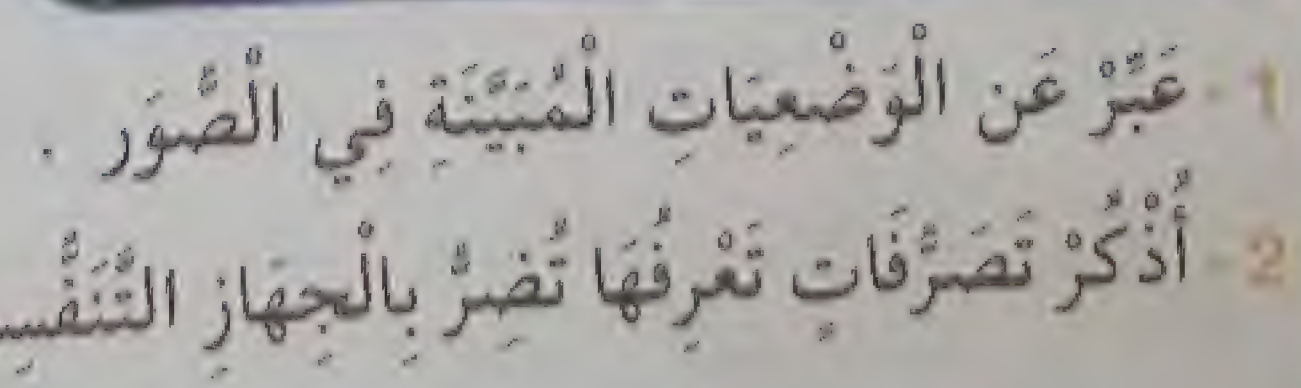 1 - عَبِّرْ عَنِ الْوَضْعِيَاتِ الْمُبَيَّنَةِ فِي الْصُّوَرِ .
2 - أُذْكُرْ تَصَرُّفَاتٍ تَعْرِفُهَا تُضِرُّ بِالْجِهَازِ